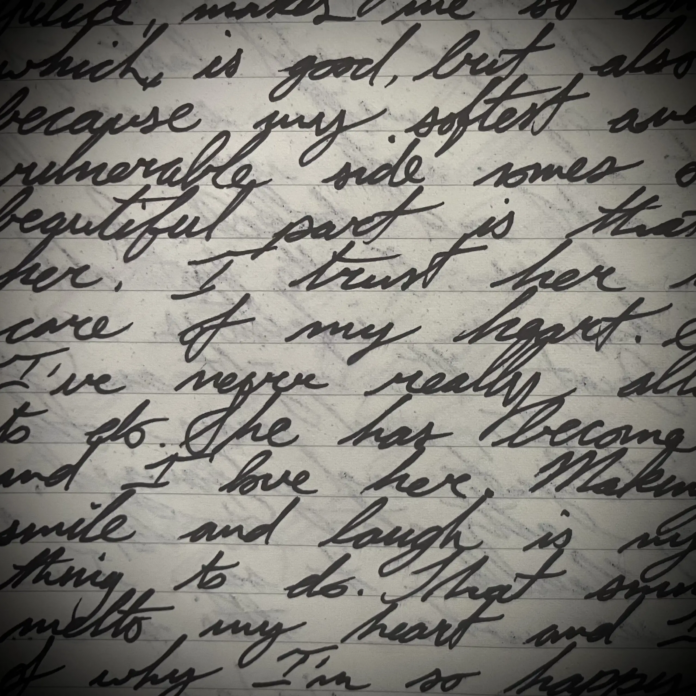 makes me so
which, is good, but also
because my softest
vulnerable side comes
beautiful part is that
her. I trust her
care of my heart.
I've never really
to do. She has become
and I love her.
smile and laugh is my
thing to do. That
melts my heart and I
of why I'm so